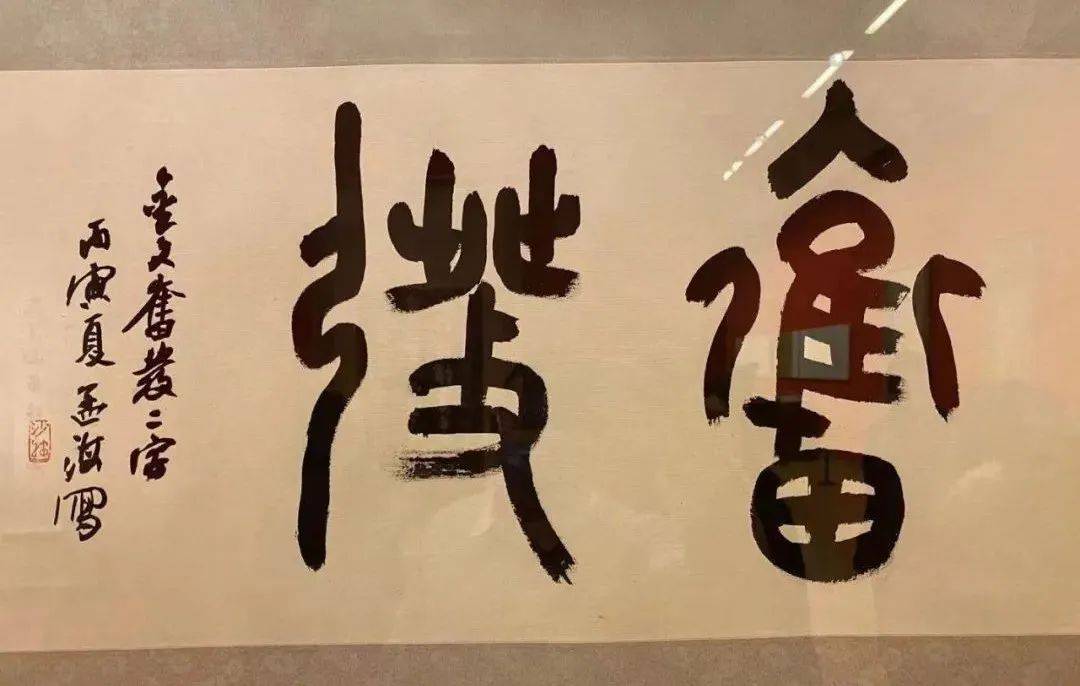 奮發
金文奮發二字
丙寅夏孟海寫
沙孟海